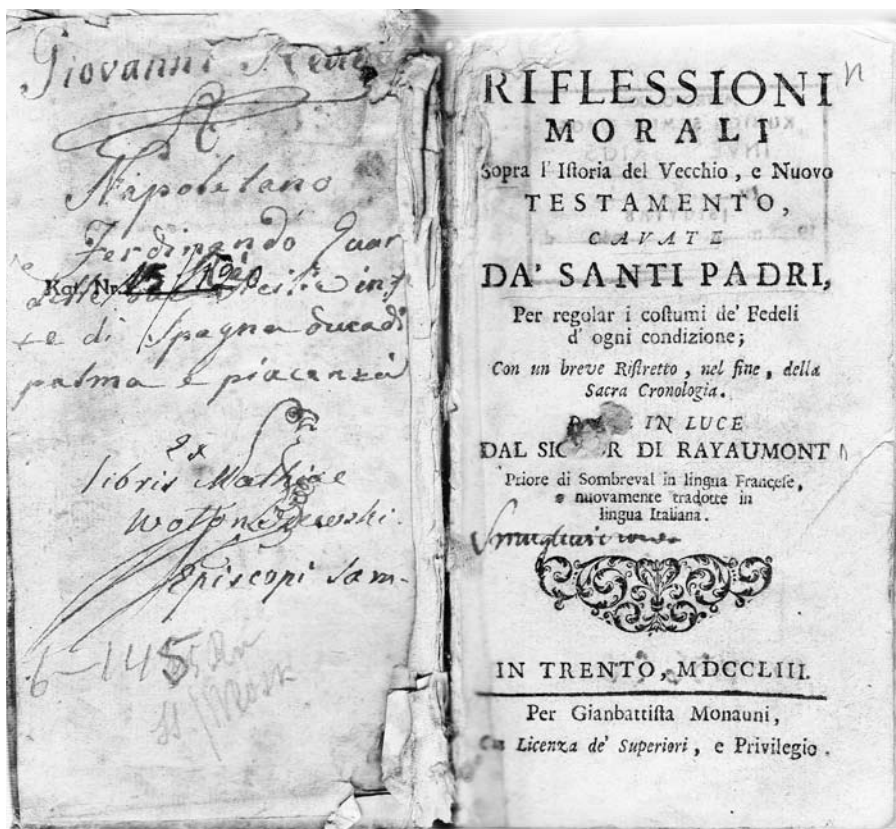 Giovanni
Napoletano
Ferdinando Quar
Kat. Nr. 15
te di Spagna ducadi
palma e piacanza
Ex
libris Mathiae
Episcopi Sam-
6-145
RIFLESSIONI
MORALI
Sopra l' Iſtoria del Vecchio, e Nuovo
TESTAMENTO,
CAVATE
DA' SANTI PADRI,
Per regolar i coſtumi de' Fedeli
d' ogni condizione;
Con un breve Riſtretto, nel fine, della
Sacra Cronologia.
IN LUCE
DAL DI RAYAUMONT
Priore di Sombreval in lingua Franceſe,
e nuovamente tradotte in
lingua Italiana.
IN TRENTO, MDCCLIII.
Per Gianbattiſta Monauni,
Con Licenza de' Superiori, e Privilegio.